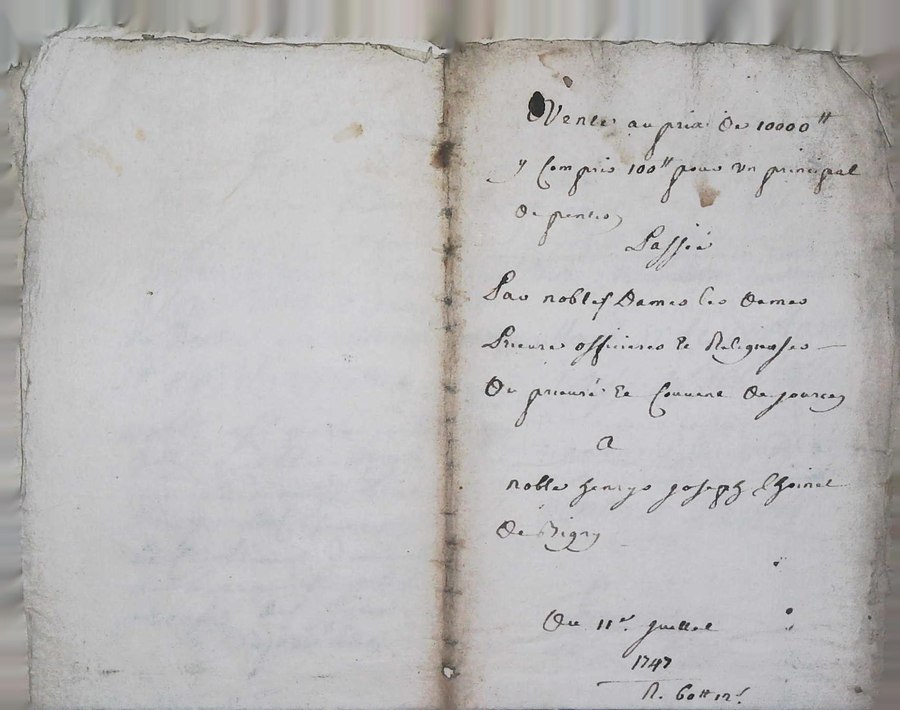 Vente au prix De 10000 ₶
y Compris 100 ₶ pour un principal
De pentes
Passée
Par nobles Dames les Dames
Prieure officieres et Religieuses
Du prieuré et Couvent de jourcey
A
noble henry joseph Choinet
De Bigny
Du 11e. juillet
1747
R. 60 ₶ 12 s.